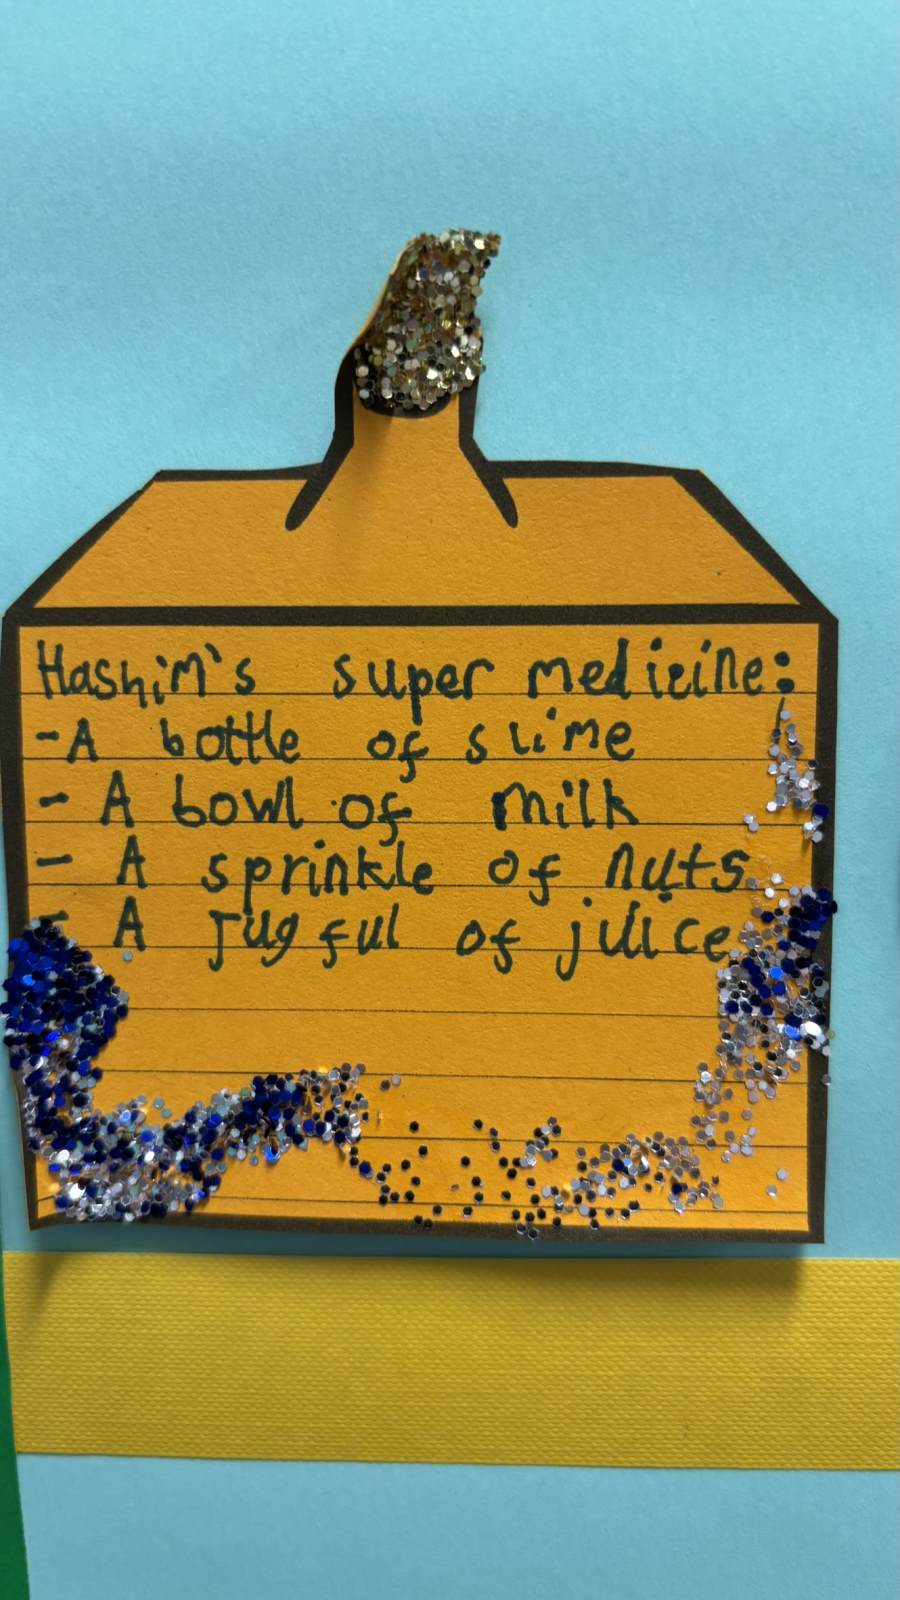 Hashim's super medicine:
- A bottle of slime
- A bowl of milk
- A sprinkle of nuts
- A Jug ful of juice